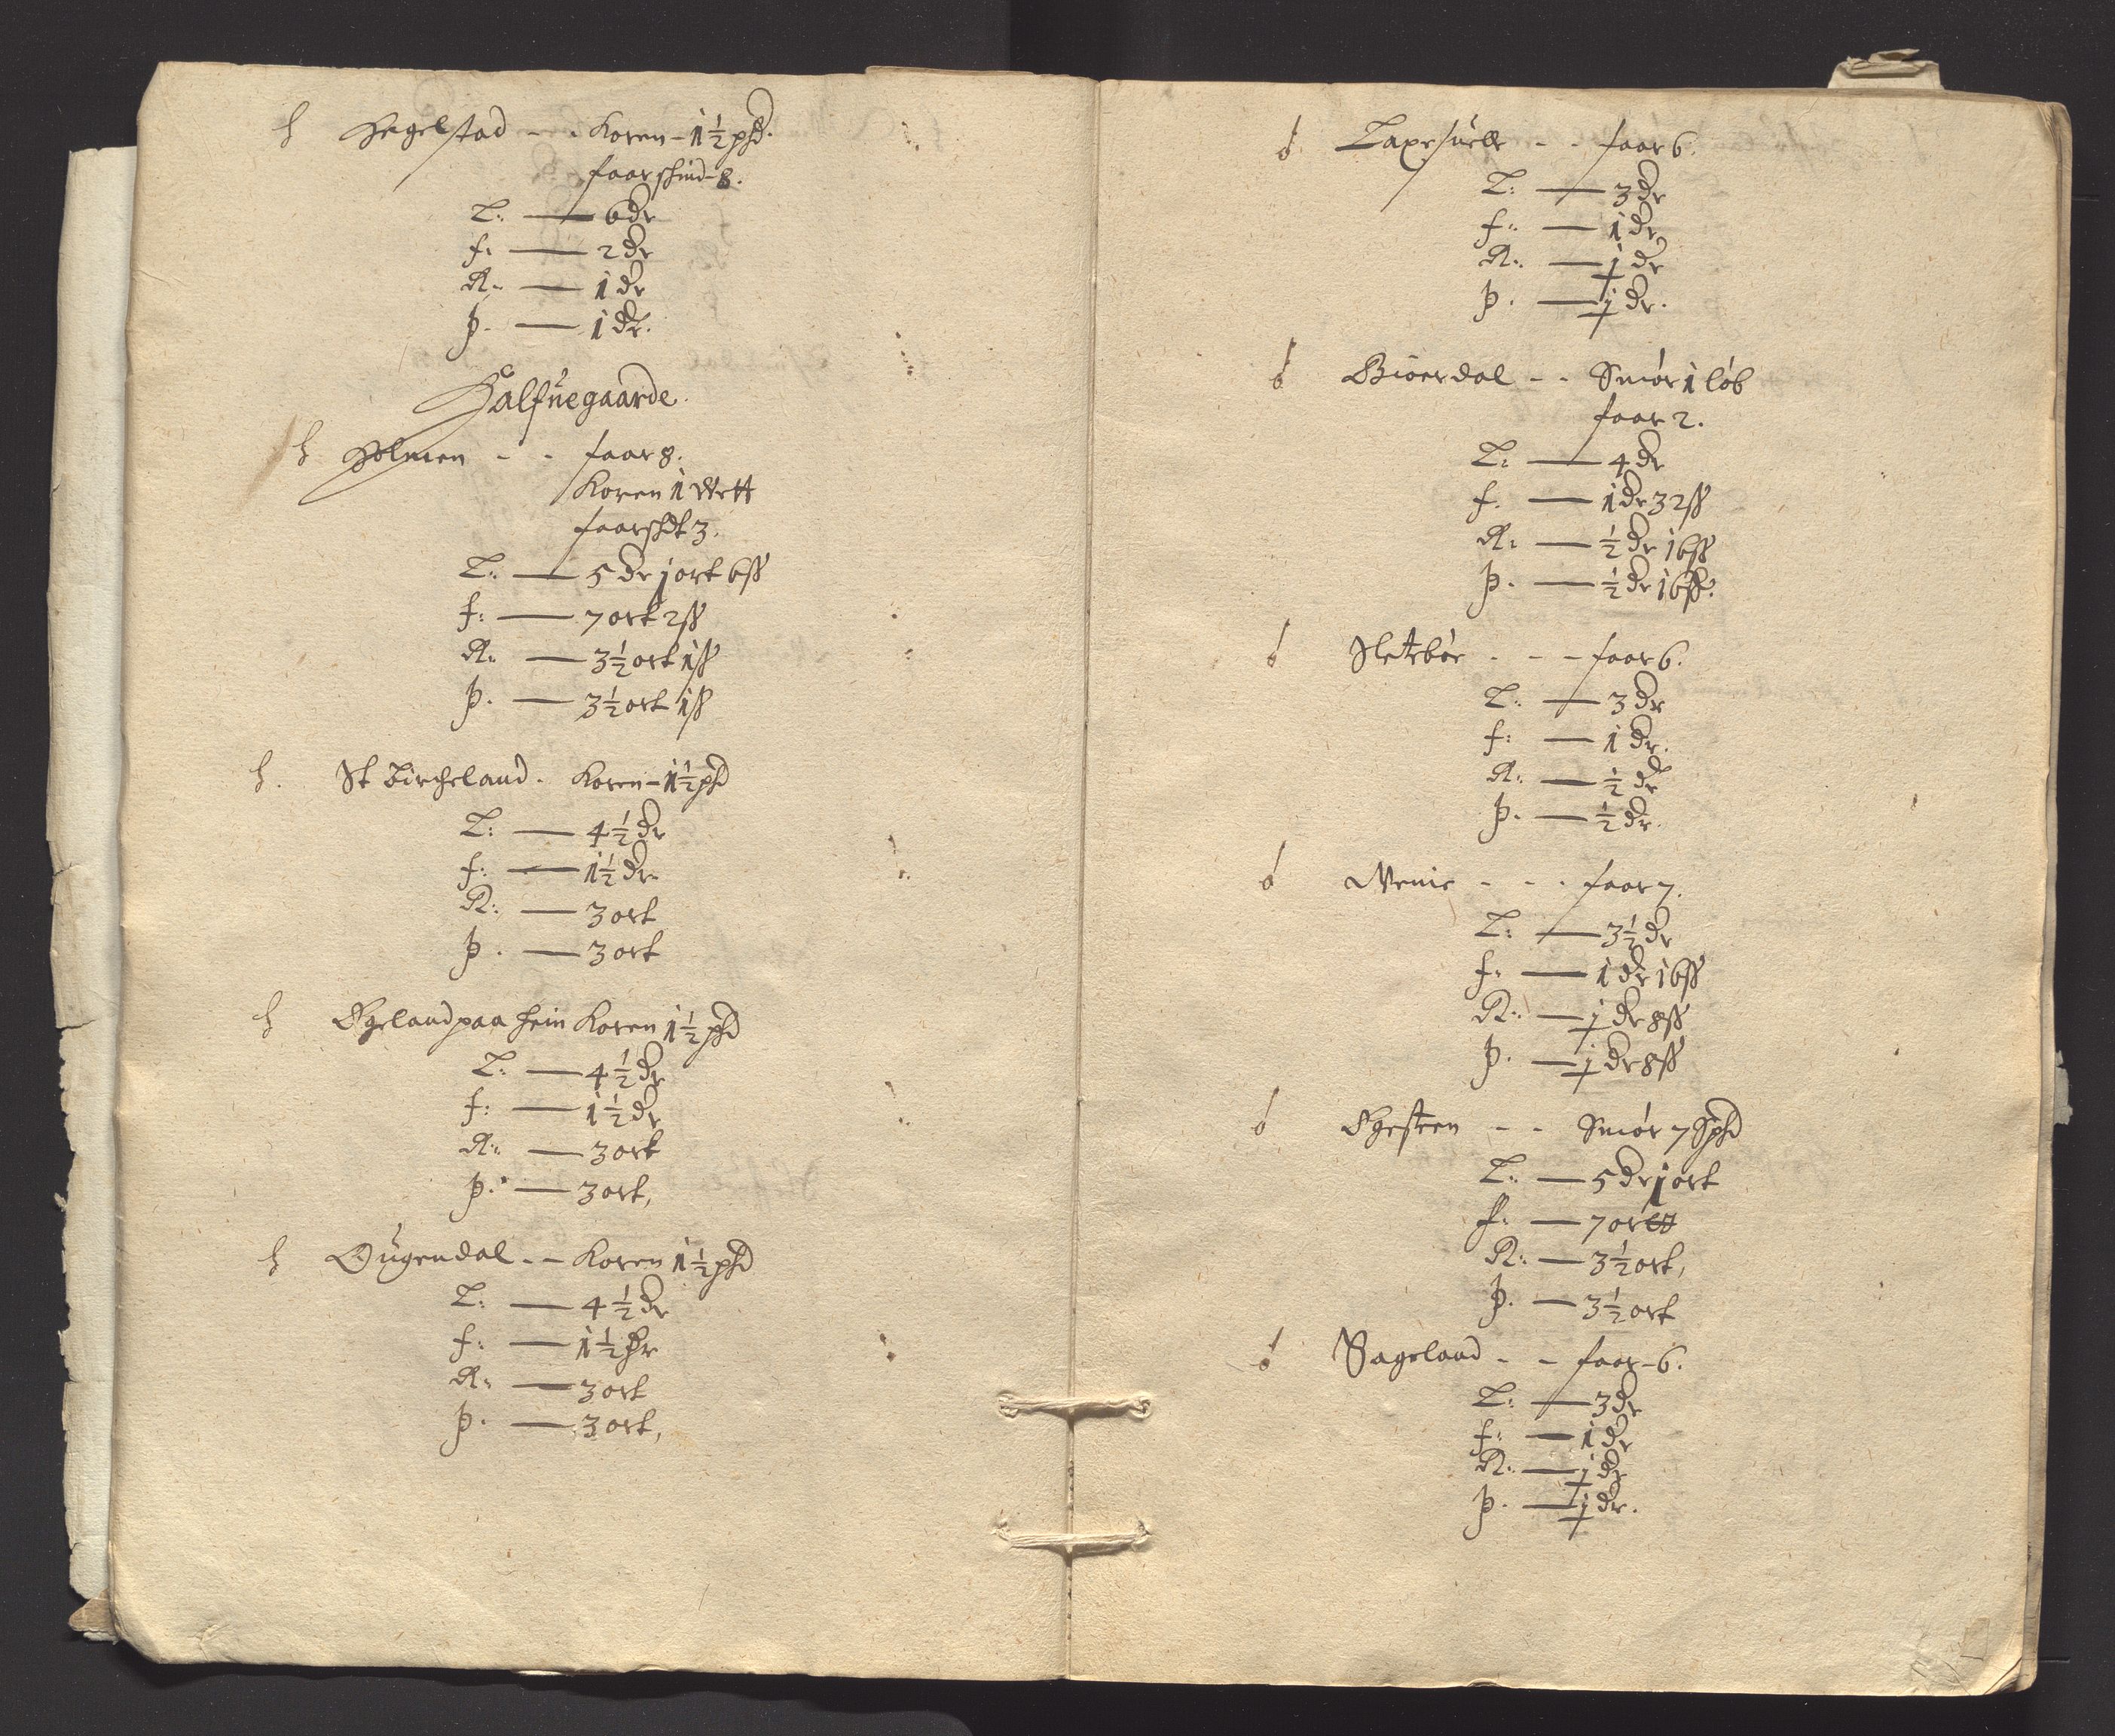 h Hegelstad - - Koren - 1½ phd.
faarskind - 8.
L: — 6 dr
f: — 2 dr
R: — 1 dr
þ. — 1 dr.
Halfuegaarde.
h Holmen - - faar 8.
Koren 1 Wett
faarskd 3.
L: — 5 dr j ort 6 ß
f: — 7 ort 2 ß
R: — 3½ ort 1 ß
þ. — 3½ ort 1 ß
h. St Birckeland. Koren - 1½ phd
L: — 4½ dr
f: — 1½ dr.
R: — 3 ort
þ. — 3 ort
h Egeland paa hein Koren 1½ phd
L: — 4½ dr
f: — 1½ dr
R: — 3 ort
þ. — 3 ort,
h Ougendal - - Koren 1½ phd
L: — 4½ dr
f: — 1½ dr
R: — 3 ort
þ. — 3 ort,
ó Laxesuelle - - faar 6.
L: — 3 dr
f: — 1 dr
R: — ½ dr
þ. — ½ dr.
ó Bioerdal - - Smór 1 lób
faar 2.
L: — 4 dr
f. — 1 dr 32 ß
R: — ½ dr 16 ß
þ. — ½ dr 16 ß.
ó Sletebóe - - - faar 6.
L: — 3 dr
f: — 1 dr.
R: — ½ dr
þ. — ½ dr.
ó Weuie - - - faar 7.
L: — 3½ dr
f: — 1 dr 16 ß
R: — ½ dr 8 ß
þ. — ½ dr 8 ß
ó Egesteen - - Smór 7 Sphd
L: — 5 dr j ort
f: — 7 ortt
R: — 3½ ort,
þ. — 3½ ort
ó Bageland - - faar - 6.
L: — 3 dr
f: — 1 dr
R: — ½ dr
þ. — ½ dr.